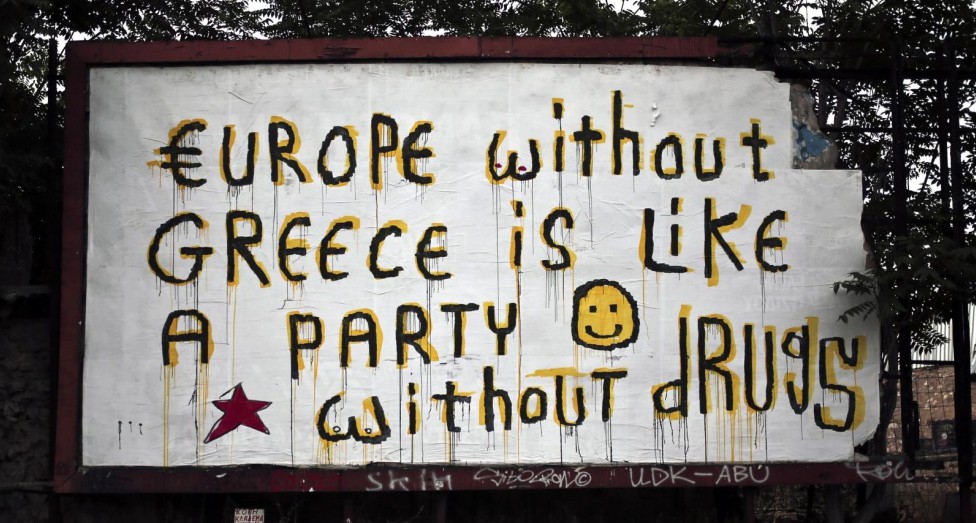 €UROPE without
GREECE is LiKe
A PARTY
without dRUgs
UDK-ABU